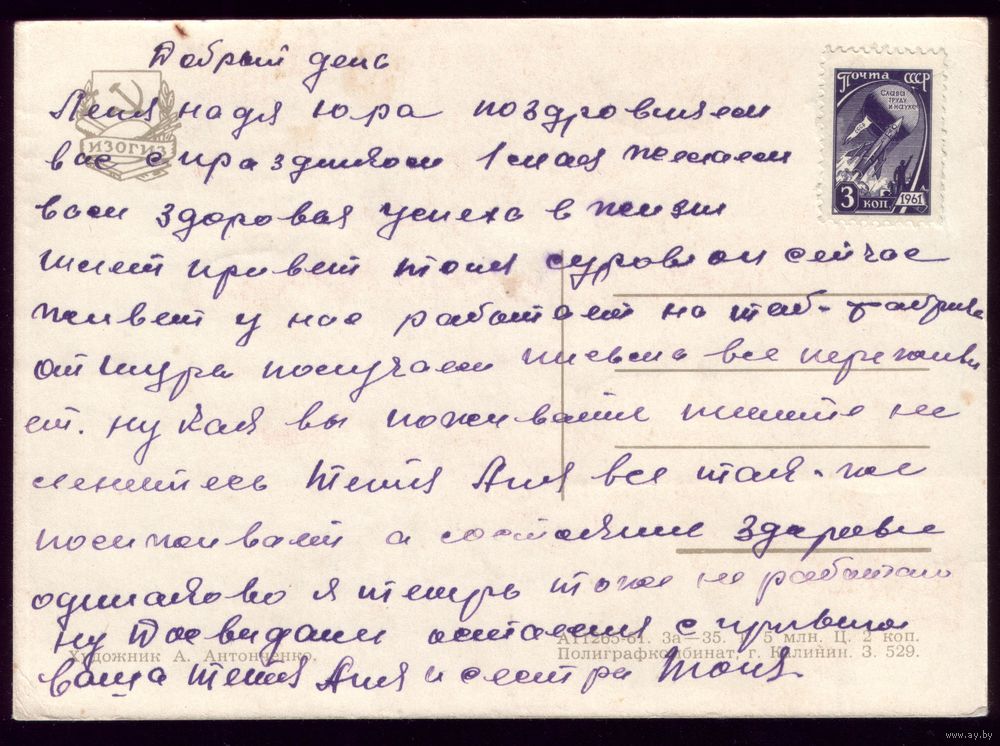 Добрый день
Леня надя юра поздровляем
вас с празднком 1 мая желаем
вам здоровья успеха в жизни
шлет привет тоня суровкои сейчас
живет у нас работает на таб-фабрике
от шура получаем письма все пережива
ет. ну как вы поживаете пишите не
ленитесь тетя Аня все так-же
посиживает а состояние здоровье
одинаково я теперь тоже не работаю
ну Досвидани остаемся с приветом
ваша тетя Аня и сестра Тоня
ИЗОГИЗ
Почта СССР
Слава
труду
и науке
3 коп. 1961
Художник А. Антонченко.
А11265-61. За—35. Т. 5 млн. Ц. 2 коп.
Полиграфкомбинат, г. Калинин. З. 529.
www.ay.by